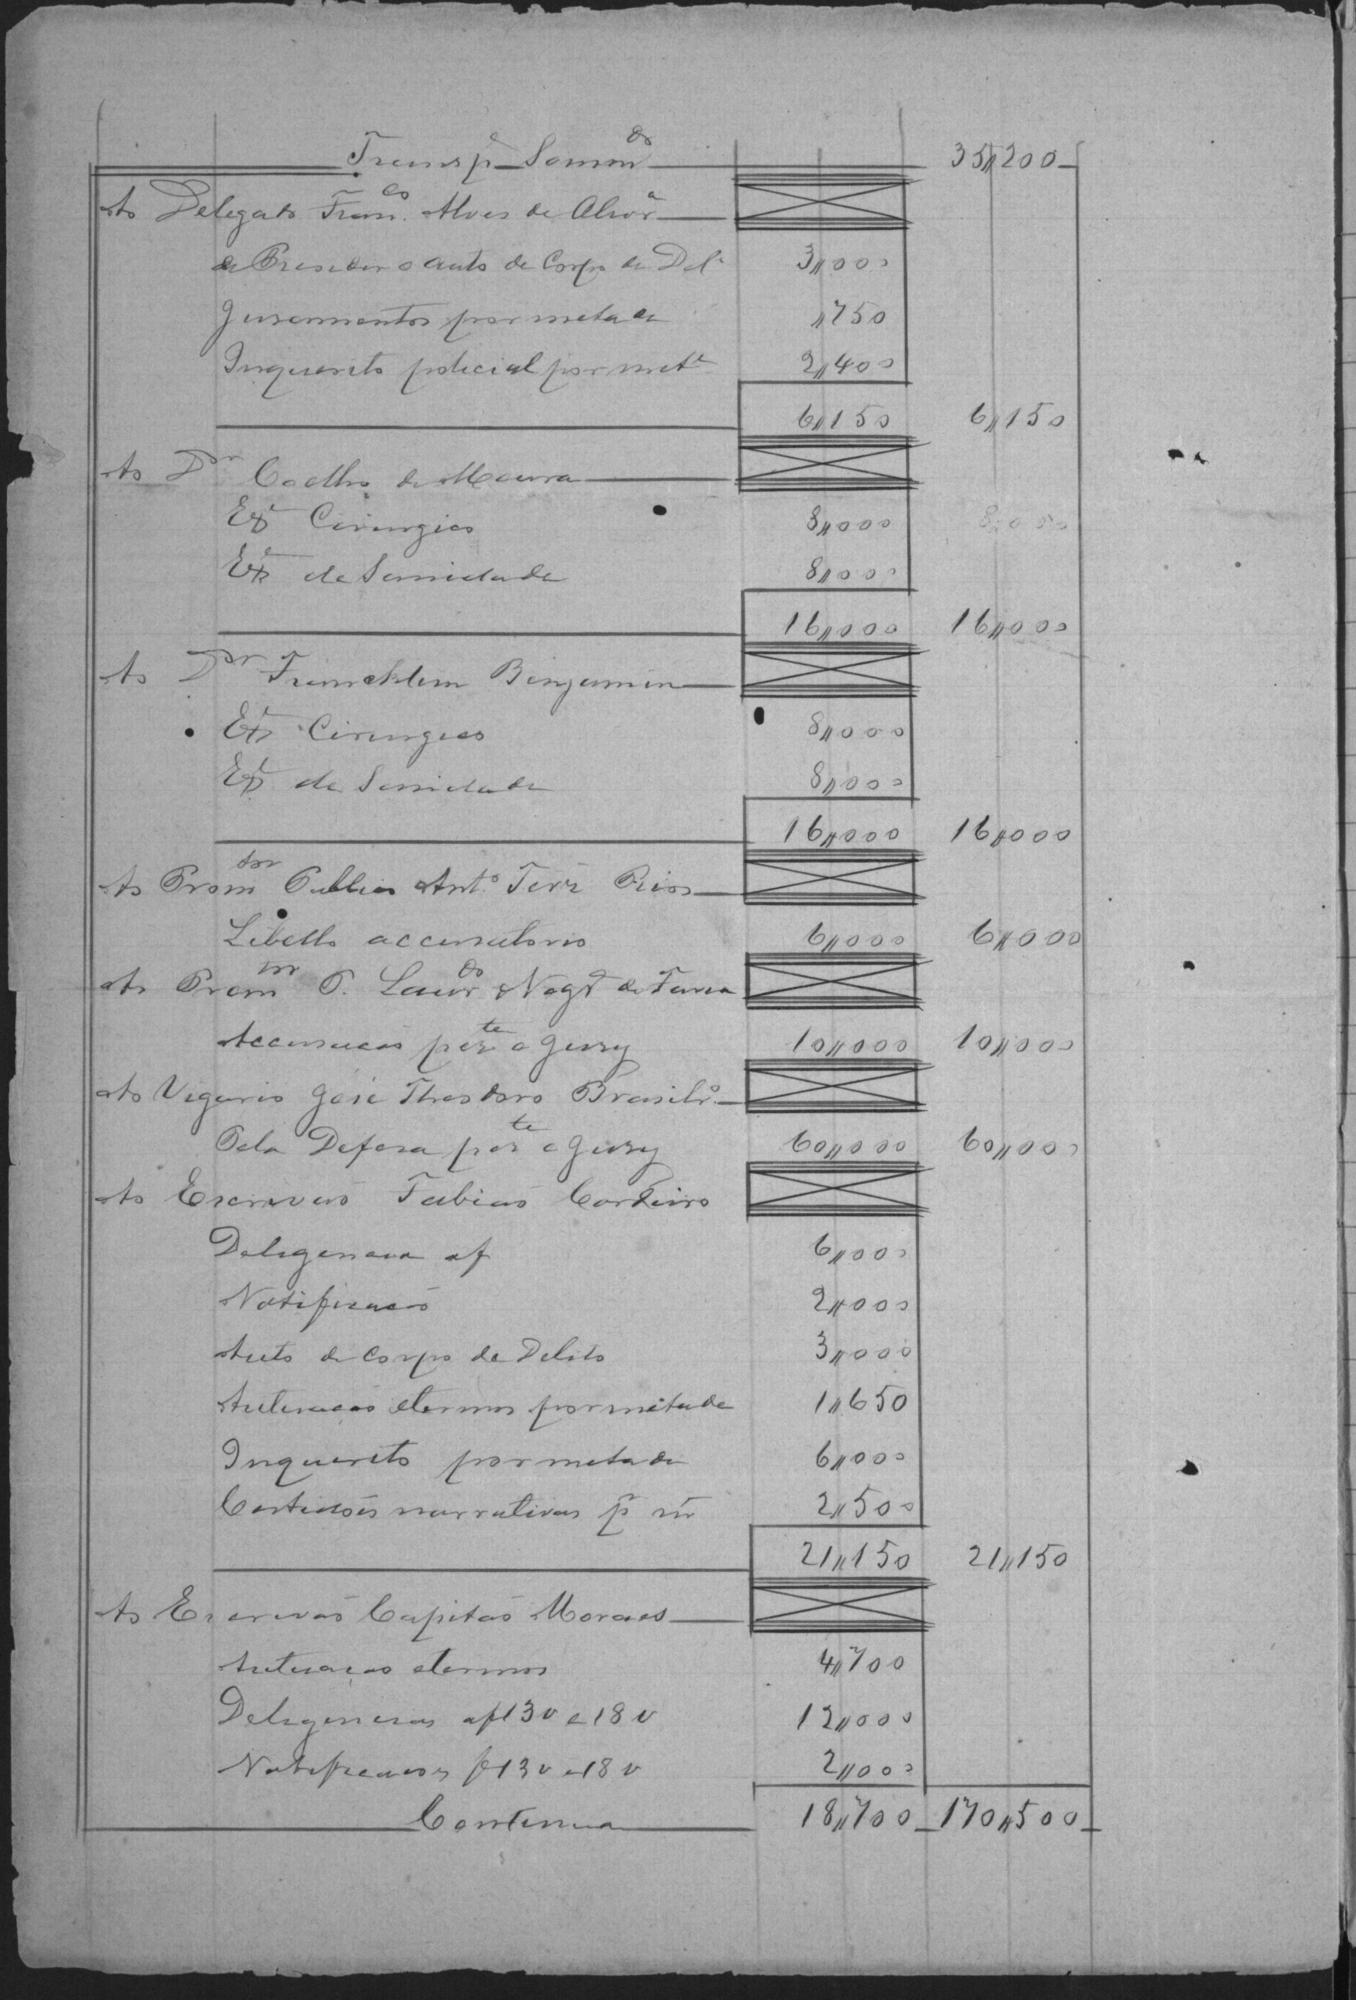 Transpe Somdo 35,,200
Ao Delegado Franco. Alves de Alvora
de Presedir o auto de Corpo de Dela 3,,000
Juramentos por metade ,,750
Inquerito policial por mete 2,,400
6,,150 6,,150
Ao Dor Coelho de Moura
Exe Cirurgico 8,,000 8,,000
Exe de Sanidade 8,,000
16,,000 16,,000
Ao Dor Francklim Benjamin
Exe Cirurgico 8,,000
Exe de Sanidade 8,,000
16,,000 16,,000
Ao Promtor Publico Anto Ferra Rios
Libello accusatorio 6,,000 6,,000
Ao Promtor P. Laurdo Nogra de Faria
Accusacão perte o Jury 10,,000 10,,000
Ao Vigario José Theodoro Brasilro
Pela Defesa perte o Jury 60,,000 60,,000
Ao Escrivão Fabião Cordeiro
Deligencia af 6,,000
Notificacão 2,,000
Auto de Corpo de Delito 3,,000
Autuacão e termos por metade 1,,650
Inquerito por metade 6,,000
Certidões narrativas pr m 2,,500
21,,150 21,,150
Ao Escrivão Capitão Moraes
Autuacão e termos 4,,700
Deligencias af 13 v e 18 v 12,,000
Notificacões f 13 v e 18 v 2,,000
Continua 18,,700 170,,500